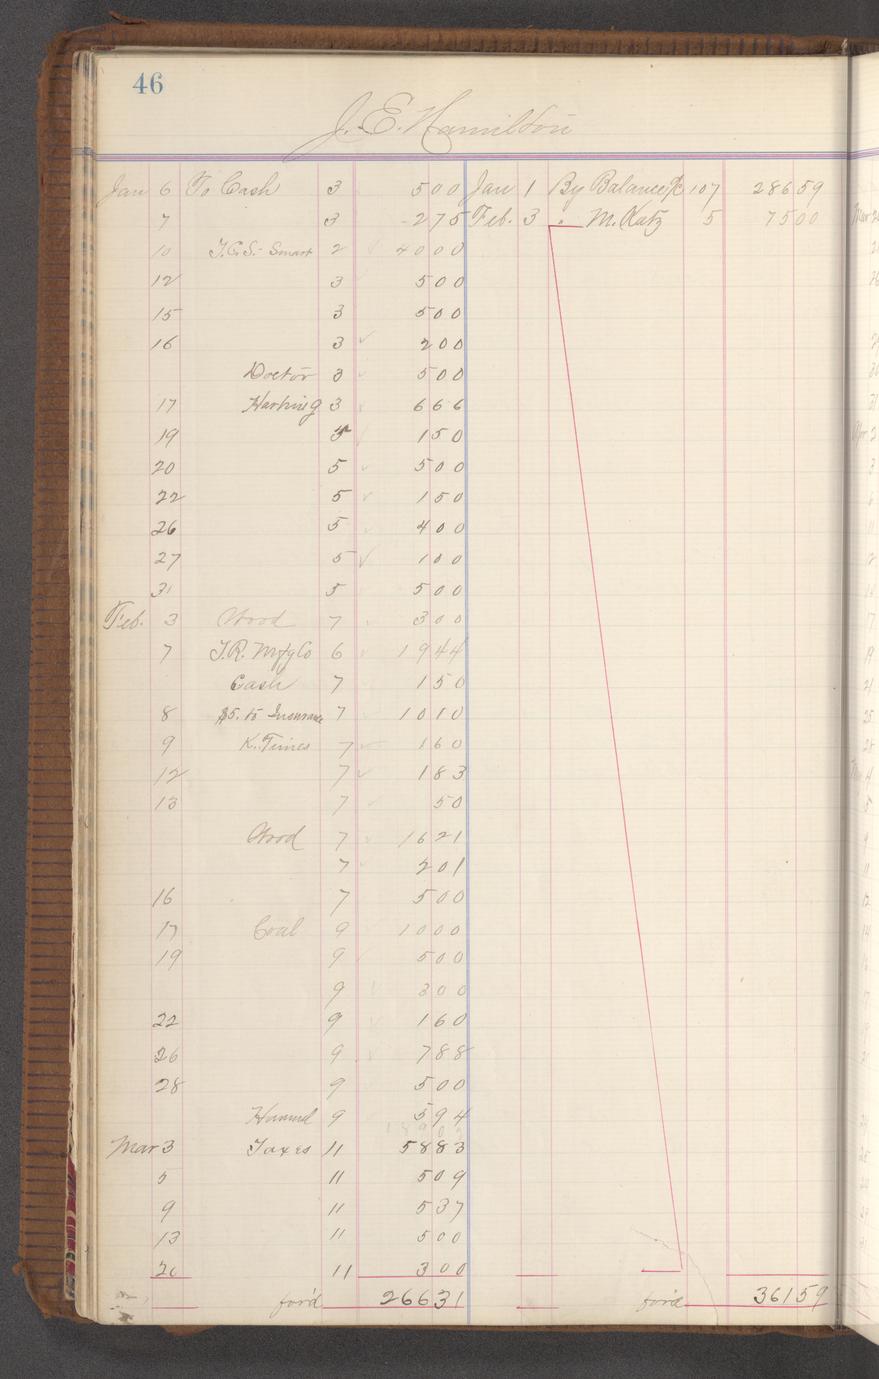 46
J. E. Hamilton
Jan 6 To Cash 3 500 Jan 1 By Balance 107 28659
7 3 275 Feb. 3 " M. Katz 5 7500
10 Smart 2 4000
12 3 500
15 3 500
16 3 200
Doctor 3 500
17 3 666
19 5 150
20 5 500
22 5 150
26 5 400
27 5 100
31 5 500
Feb. 3 Wood 7 300
7 T.R. Mfg Co 6 1944
Cash 7 150
8 Insurance 7 1010
9 K. Times 7 160
12 7 183
13 7 50
Wood 7 1621
7 201
16 7 500
17 Coal 9 1000
19 9 500
9 300
22 9 160
26 9 788
28 9 500
9 594
Mar 3 Taxes 11 5883
5 11 509
9 11 537
13 11 500
20 11 300
for'd 26631 for'd 36159